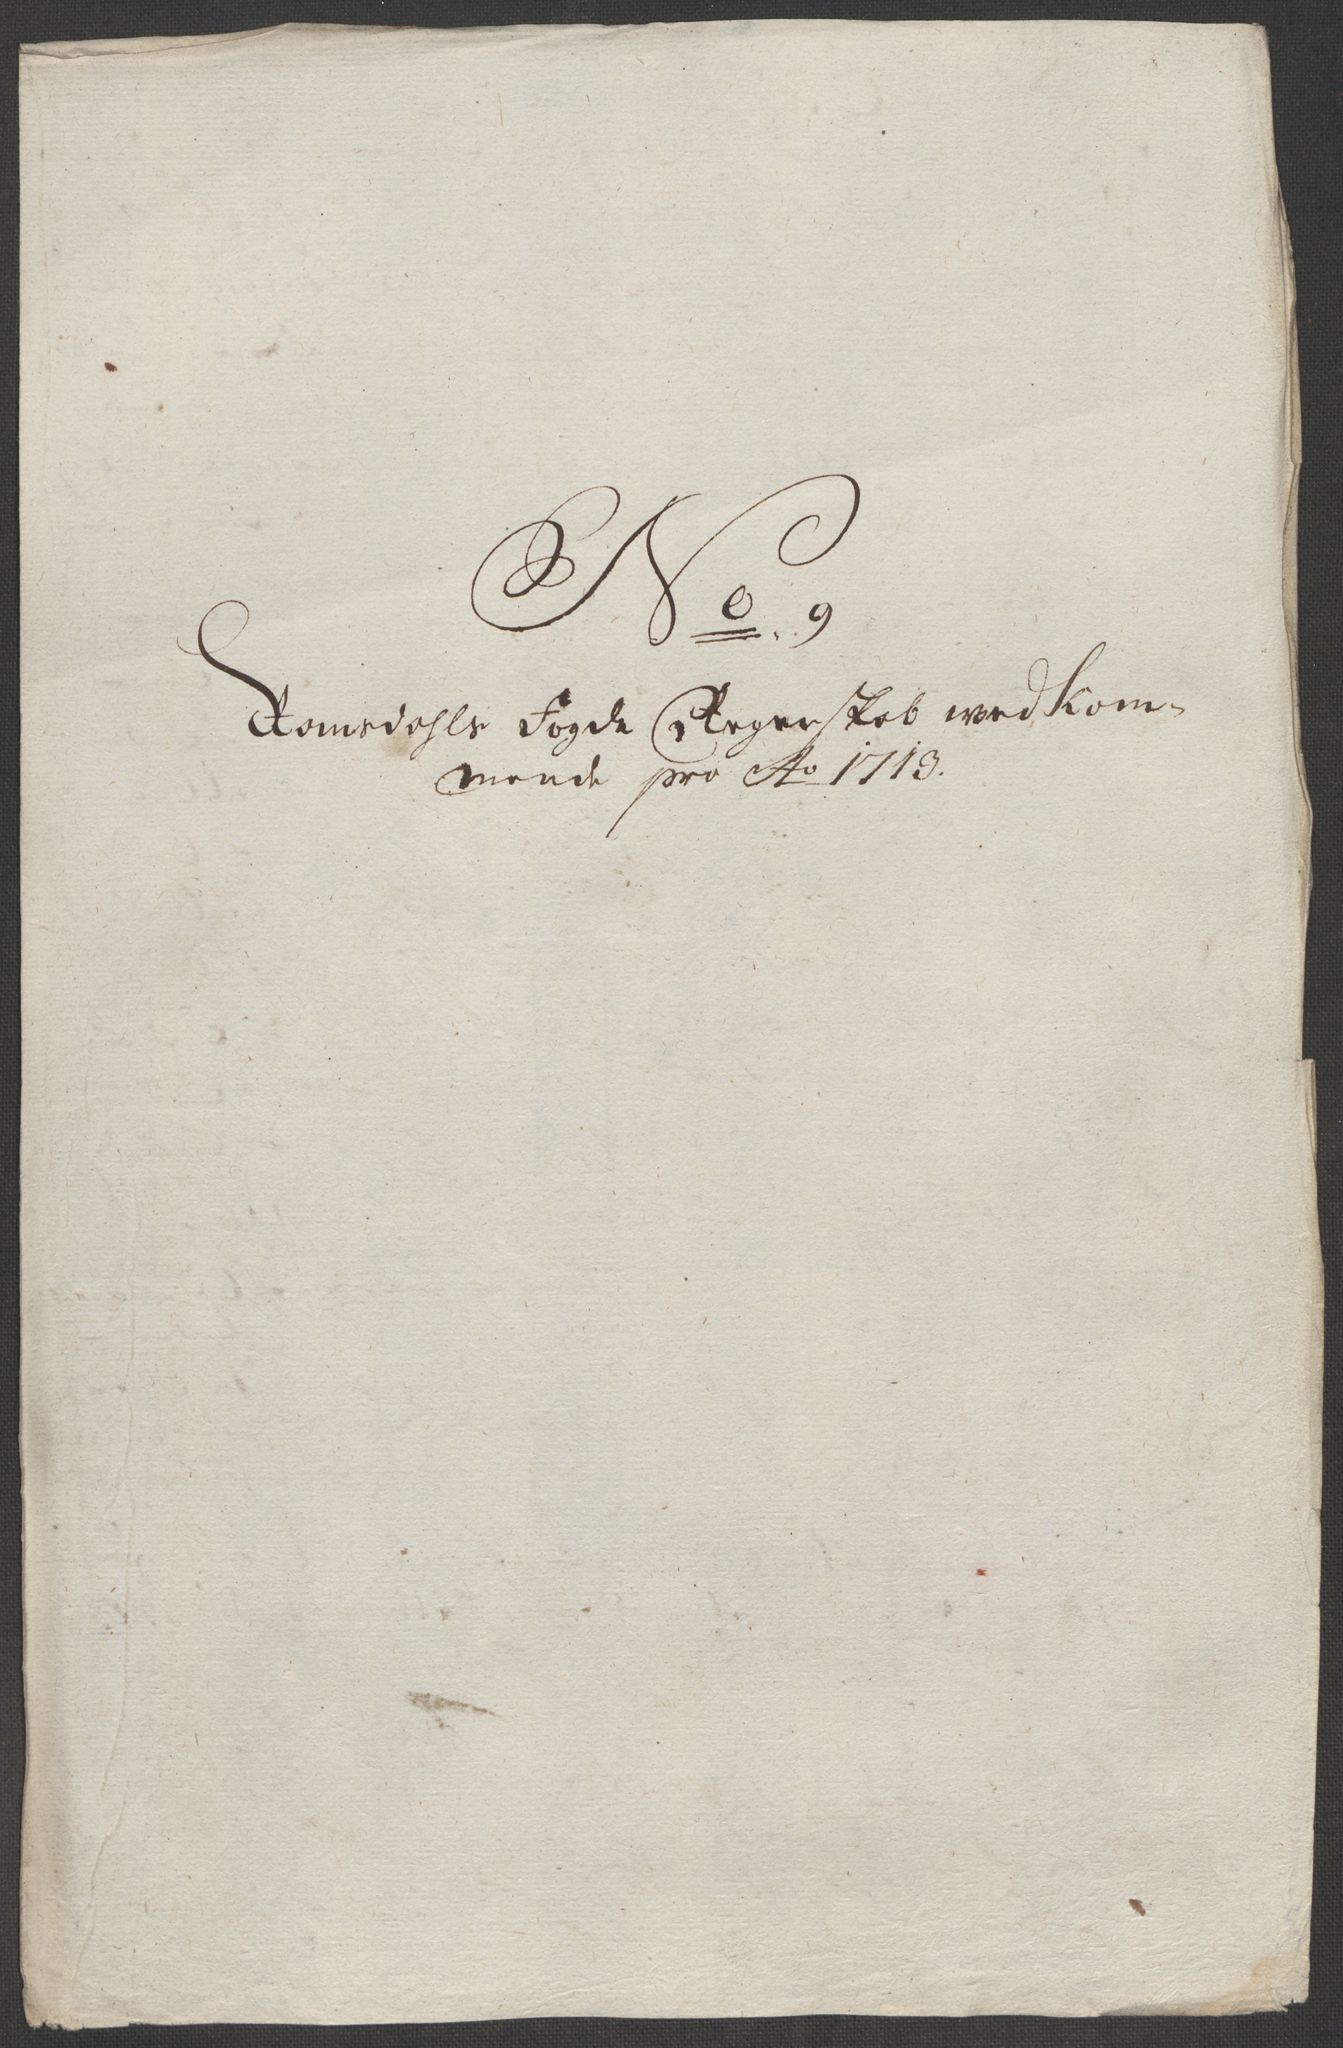 No. 9
Romsdahls Fogde Regenskab wedkom-
mende pro Ao 1713.